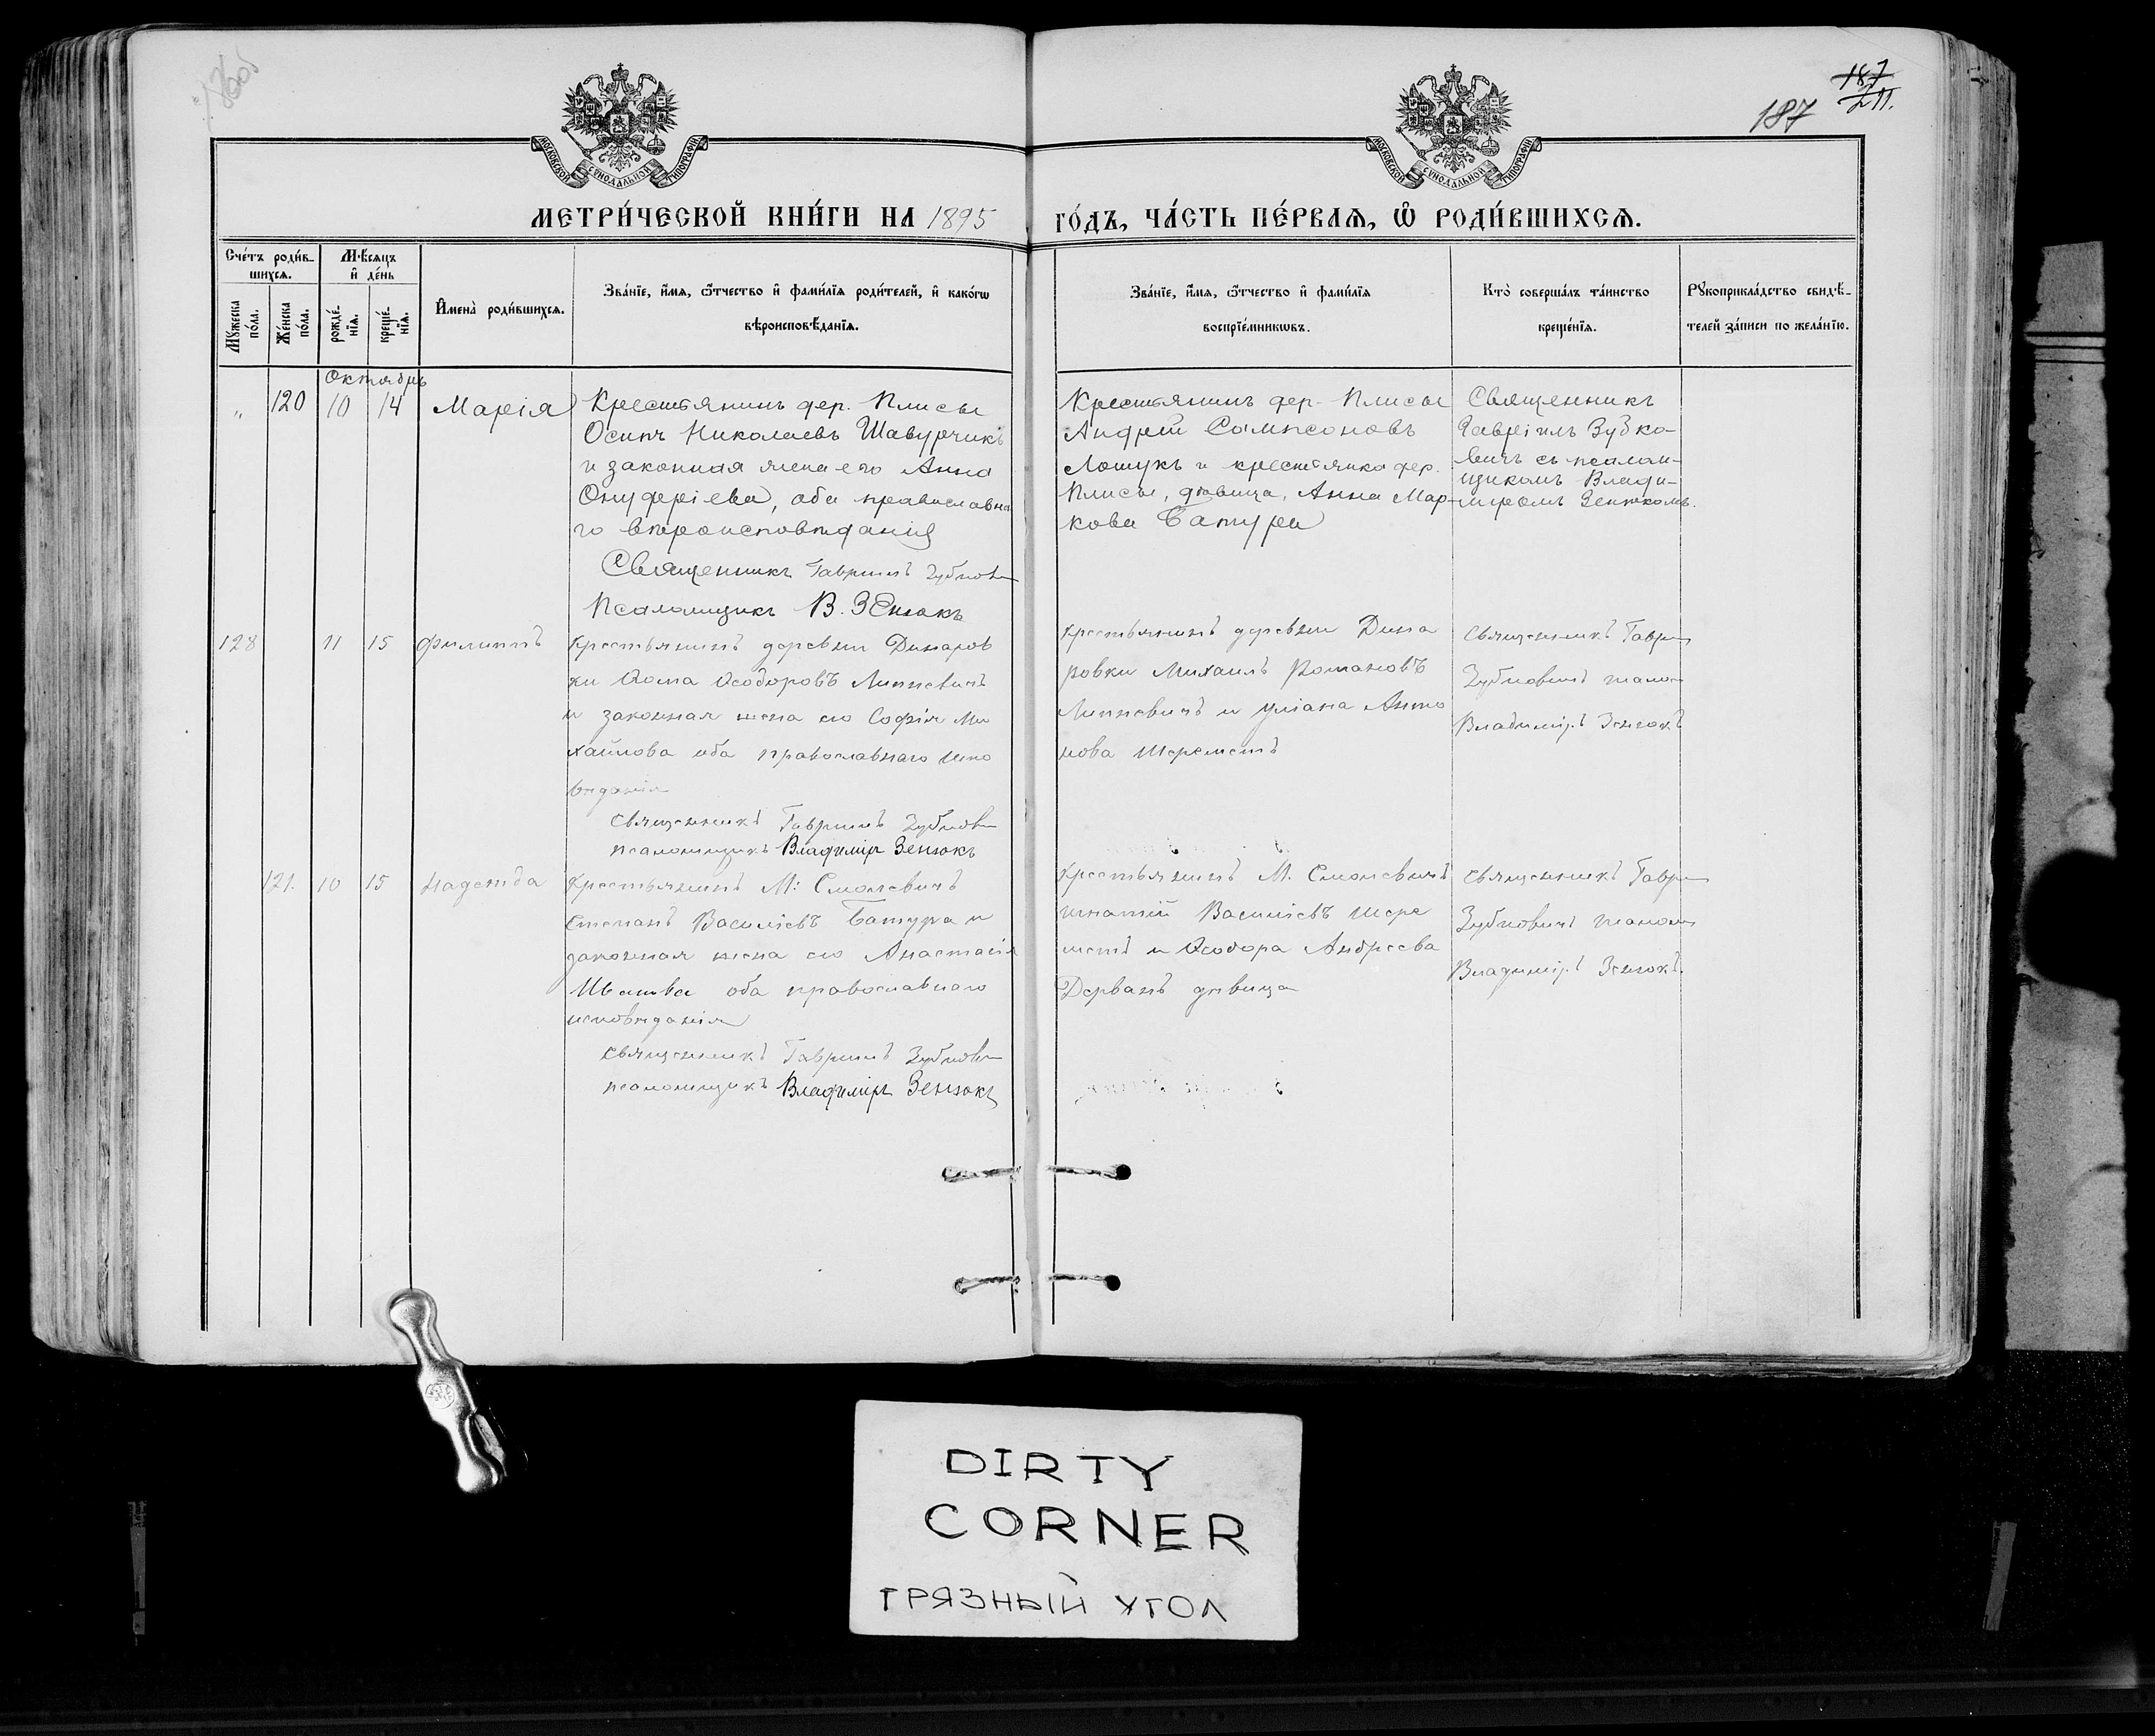 187
187
211.
МОСКОВСКОЙ СѴНОДАЛЬНОЙ ТИПОГРАФІИ
МОСКОВСКОЙ СѴНОДАЛЬНОЙ ТИПОГРАФІИ
МЕТРИ́ЧЕСКОЙ КНИ́ГИ НА 1895
ГО́ДЪ, ЧА́СТЬ ПЕ́РВАѦ, Ѡ РОДИ́ВШИХСѦ.
Сче́тъ роди́в-
шихсѧ.
Мꙋ́жеска по́ла.
Же́нска по́ла.
Мѣ́сѧцъ
и҆ де́нь
рожде́-
нїѧ.
креще́-
нїѧ.
И҆мена̀ роди́вшихсѧ.
Зва́нїе, и҆́мѧ, ѻ҆́тчество и҆ фами́лїѧ роди́телей, и҆ како́гѡ
вѣроисповѣ́данїѧ.
Зва́нїе, и҆́мѧ, ѻ҆́тчество и҆ фами́лїѧ
воспрїе́мникѡвъ.
Кто̀ соверша́лъ та́инство
креще́нїѧ.
Рꙋкоприкла́дство свидѣ́-
телей за́писи по жела́нїю.
Октябрь
„ 120 10 14 Марія
Крестьянинъ дер. Плисы
Осипъ Николаевъ Шавурчикъ
и законная жена его Анна
Онуфріева, оба православна
го вѣроисповѣданія
Священникъ Гавріилъ Зубкови
Псаломщикъ В. Зенюкъ
Крестьянинъ дер. Плисы
Андрей Сампсоновъ
Лошукъ и крестьянка дер.
Плисы, дѣвица, Анна Мар-
кова Батура
Священникъ
Гавріилъ Зубко-
вичъ съ псалом-
щикомъ Влади-
міромъ Зенюкомъ.
128 11 15 Филиппъ
Крестьянинъ деревни Динаров
ки Ѳома Ѳеодоровъ Липневичъ
и законная жена его Софія Ми
хайлова оба православнаго испо
вѣданія
Священникъ Гавріилъ Зубкови
псаломщикъ Владиміръ Зенюкъ
Крестьянинъ деревни Дина
ровки Михаилъ Романовъ
Липневичъ и Уліана Анто
нова Шереметъ
Священникъ Гаврі
Зубковичъ псалом
Владиміръ Зенюкъ
121. 10 15 Надежда
Крестьянинъ М. Смолевичъ
Степанъ Василіевъ Батура и
законная жена его Анастасія
Иванова оба православнаго
исповѣданія
Священникъ Гавріилъ Зубкови
псаломщикъ Владиміръ Зенюкъ
Крестьянинъ М. Смолевичъ
Игнатій Василіевъ Шере
метъ и Ѳеодора Андреева
Дерванъ дѣвица
Священникъ Гаврі
Зубковичъ псалом
Владиміръ Зенюкъ.
DIRTY
CORNER
ГРЯЗНЫЙ УГОЛ